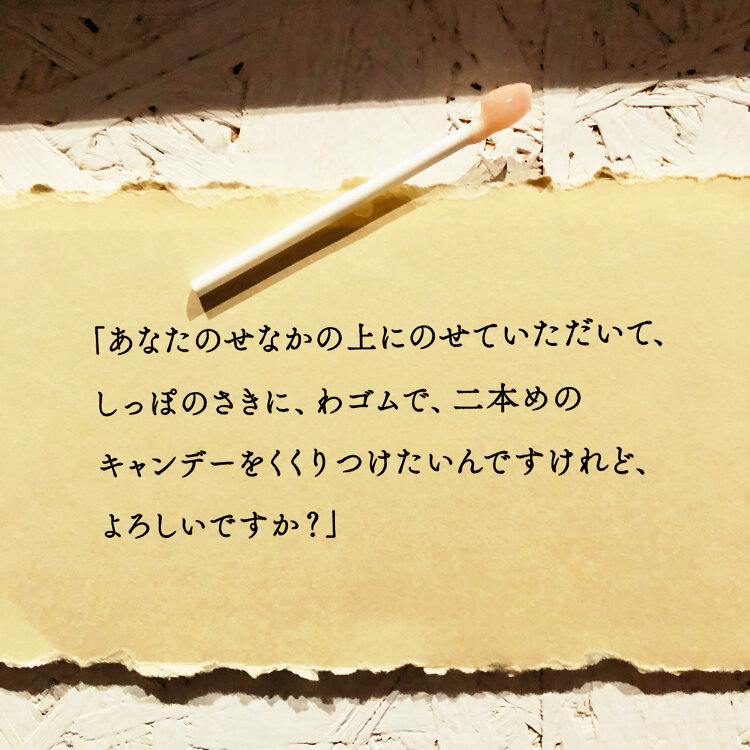 「あなたのせなかの上にのせていただいて、
しっぽのさきに、わゴムで、二本めの
キャンデーをくくりつけたいんですけれど、
よろしいですか？」